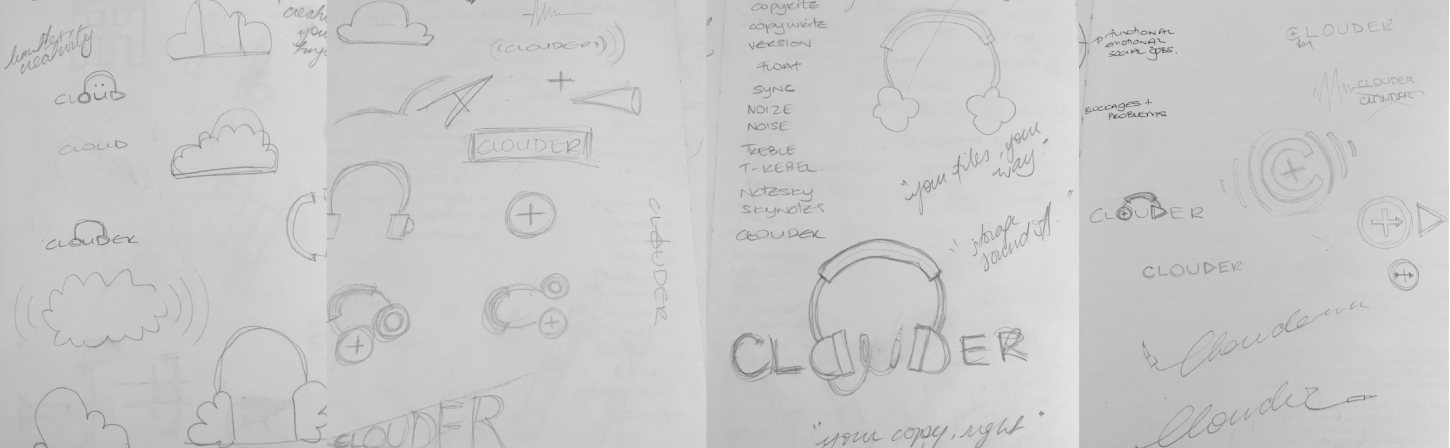 creativity
CLOUD
CLOUD
CLOUDER
((CLOUDER))
CLOUDER
CLOUDER
CLOUDER
copywrite
VERSION
FLOAT
SYNC
NOIZE
NOISE
TREBLE
T-REBEL.
NOTESKY
SKYNOTES
CLOUDER
"your files, your
way."
"storage
sound off."
CLOUDER
"your copy, right"
FUNCTIONAL
EMOTIONAL
SOCIAL JOBS.
BLOCKAGES +
PROBLEMS
CLOUDER
CLOUDER
CLOUDER
CLOUDER
CLOUDER
Clouder